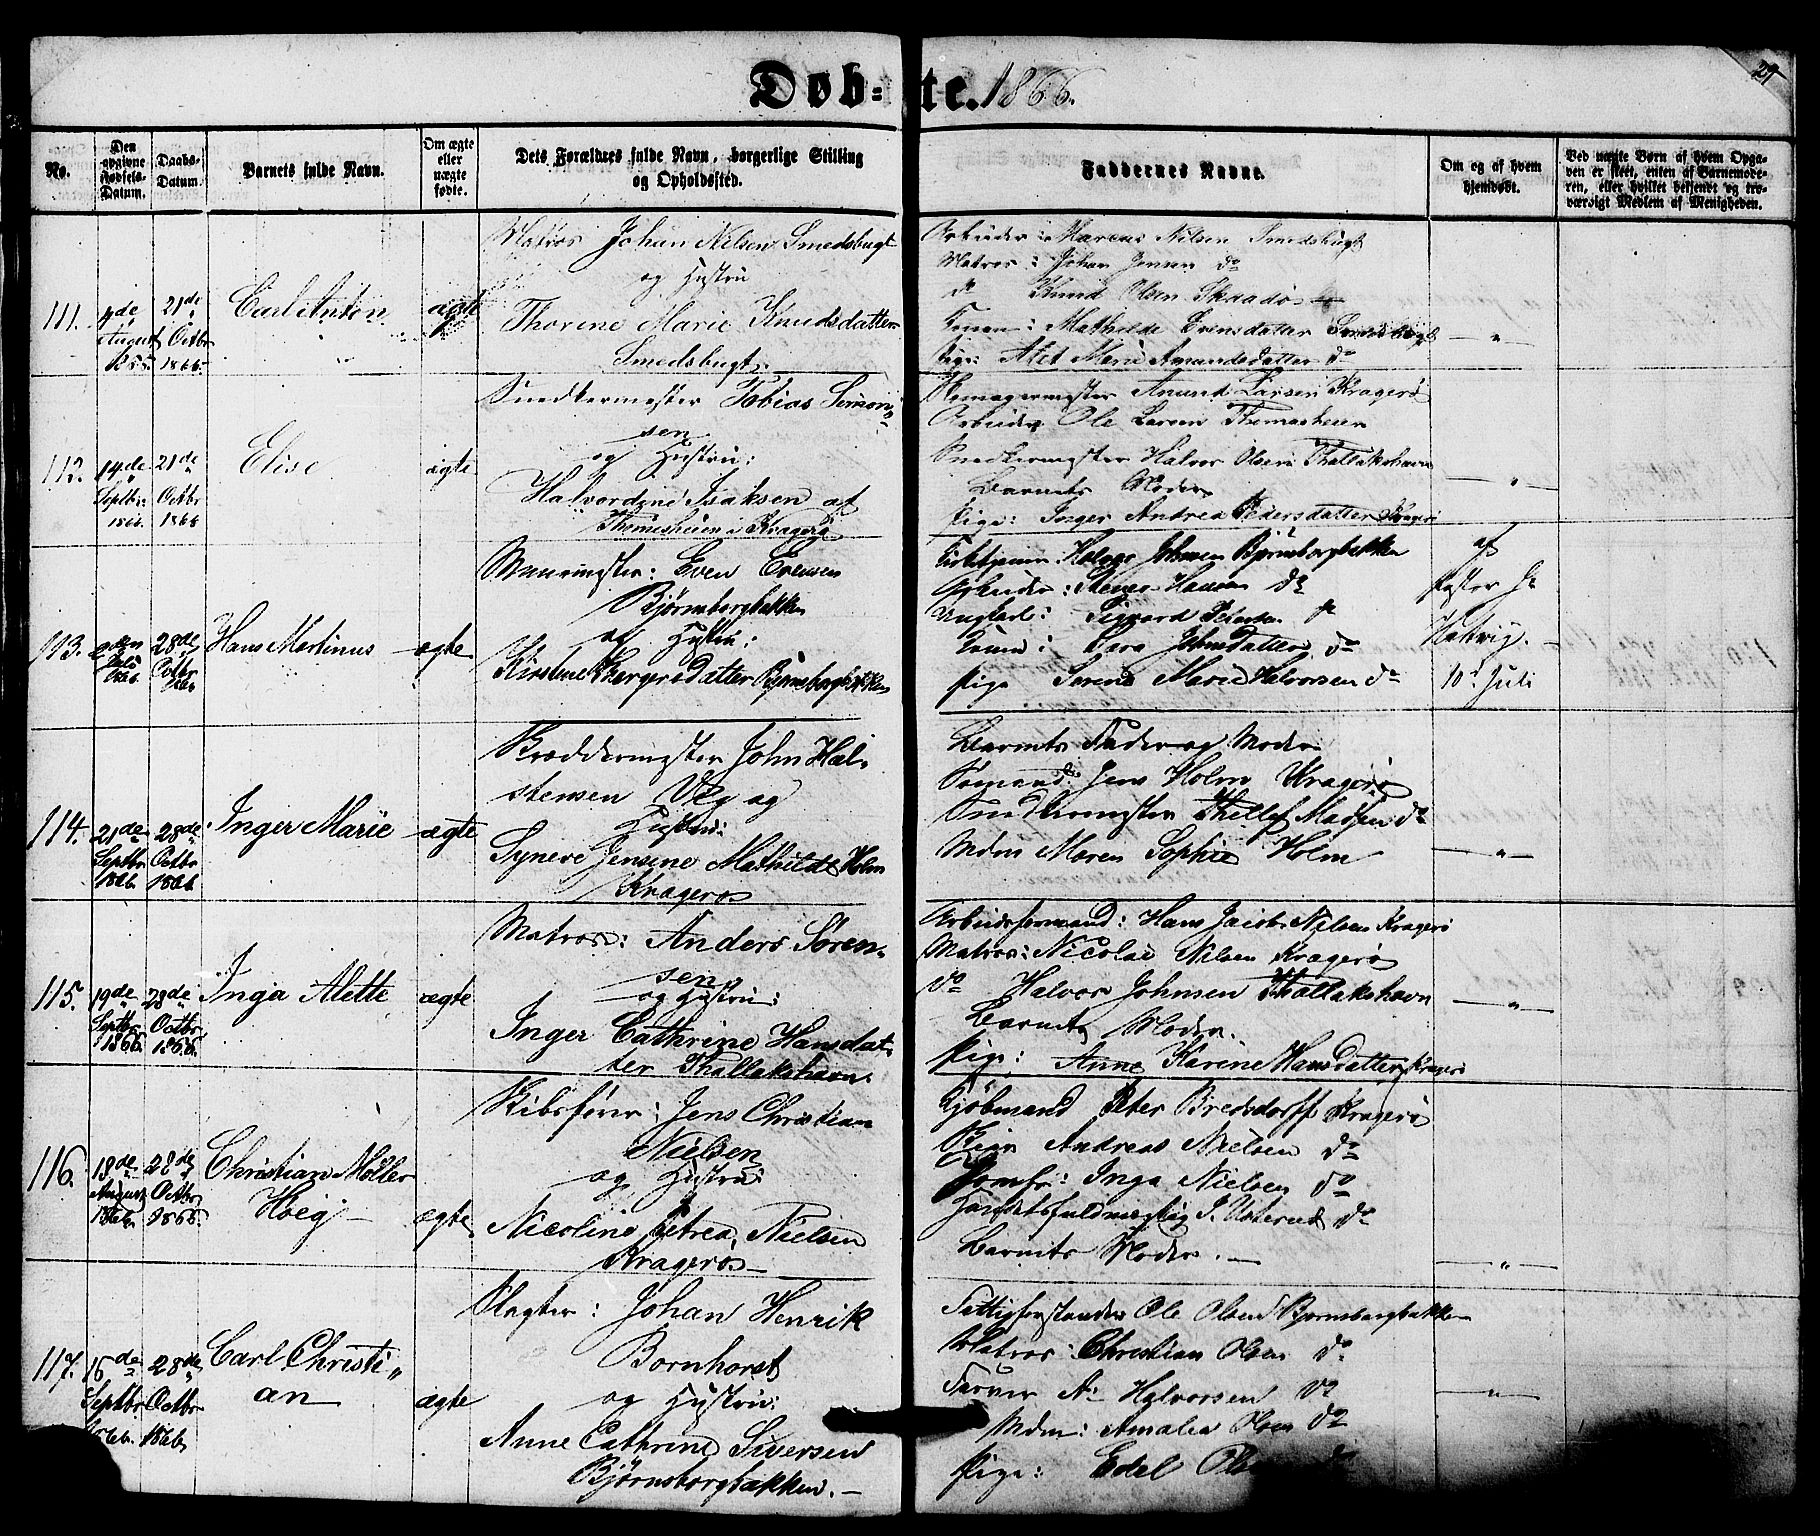 Døb-te. 1866.
29
No.
Den opgivne Fødsels-Datum.
Daabs-Datum.
Barnets fulde Navn.
Om ægte eller uægte fødte.
Dets Forældres fulde Navn, borgerlige Stilling og Opholdssted.
Faddernes Navne.
Om og af hvem hjemdøbt.
Ved uægte Børn af hvem Opga-
ven er skeet, enten af Barnemode-
ren, eller hvilket bekjendt og tro-
værdigt Medlem af Menigheden.
111.
August
21de Octbr 1866.
Carl Anton
ægte
Matros Johan Nilsen Smedsbugt
og Hustru
Thorene Marie Knudsdatter
Smedsbugt.
Arbeider: Marcus Nilsen Smedsbugt
Matros: Johan Jensen do
do Knud Olsen Skaadø
Konen: Mathilde Evensdatter Smedsbugt
Pige: Alet Marie Amundsdatter do
"
112.
14de Septbr. 1866.
21de Octbr 1866
Elise
ægte
Snedkermester Tobias Simon-
sen
og Hustru:
Halvordine Isaksen af
Thomesheien i Kragerø
Amund Larsen Kragerø
Arbeider Ole Larsen Thomasheien
Snedkermester Halvor Olsen Thallakshavn
Barnets Moder
Pige: Inger Andrea Pedersdatter Kragerø
"
113.
Juli 1866.
28de Octbr 1866.
Hans Martinus
ægte
Muurmester: Even Evensen
Bjørnsborgbakken
og Hustru:
Kirstine Bergersdatter Bjørnsborgbakken
Johnsen Bjørnsborgbakken
Arbeider: Hansen do
Ungkarl: Sigvard do
Konen: Johnsdatter do
Pige Marie Halvorsen do
af
Pastor
Hattvig.
10d Juli
114.
21de Septbr 1866.
28de Octbr 1866.
Inger Marie
ægte
John Hal-
stensen og
Hustru:
Syneve Jensine Mathilde Holm
Kragerø
Barnets Fader og Moder
Sømand: Jens Holm Kragerø
Snedkermester Thellef Madsen do
Mdm Maren Sophie Holm
"
115.
19de Septbr. 1866.
28de Octbr. 1866.
Inga Alette
ægte
Matros: Anders Søren-
sen
og Hustru:
Inger Cathrine Hansdat-
ter Thallakshavn.
Arbeidsformand: Hans Jacob Nilsen Kragerø
Matros: Nicolai Nilsen Kragerø
do Halvor Johnsen Thallakshavn
Barnets Moder.
Pige: Anne Karine Hansdatter, Kragerø
"
116.
18de August 1866.
28de Octbr 1866.
Christian Møller
Høeg
ægte
Skibsfører: Jens Christian
Nielsen
og Hustru:
Nicoline Petrea Nielsen
Kragerø
Kjøbmand Peter Bredsdorff Kragerø
Andreas Nielsen do
Jomfr: Inga Nielsen do
Handelsfuldmægtig do
Barnets Moder.
"
117.
16de Septbr. 1866.
28de Octbr 1866.
Carl Christi-
an
ægte
Slagter: Johan Henrik
Bornhorst
og Hustru:
Anne Cathrine Siversen
Bjørnsborgbakken.
Fattigforstander Ole Olsen Bjørnsborgbakken
Matros: Christian Olsen do
Farver A: Halvorsen do
Mdm: Amalia Olsen do
Pige: Edel Olsen do
"